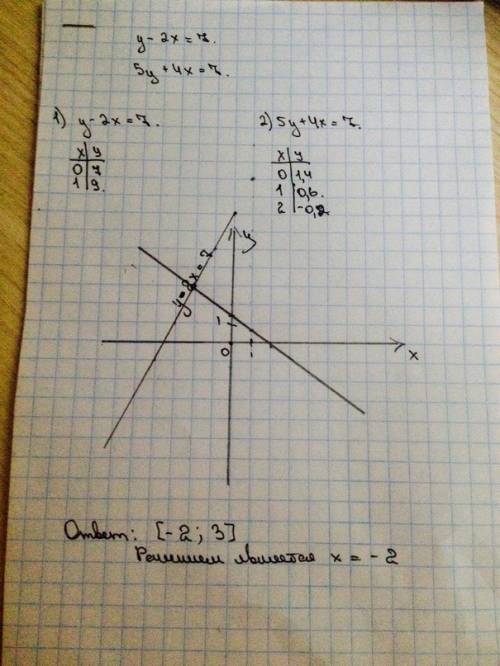 y - 2x = 7.
5y + 4x = 7.
1) y - 2x = 7.
x | y
0 | 7
1 | 9.
2) 5y + 4x = 7.
x | y
0 | 1,4
1 | 0,6.
2 | -0,2
y
y - 2x = 7
1
0 1
x
Ответ: [-2; 3]
Решением является x = -2